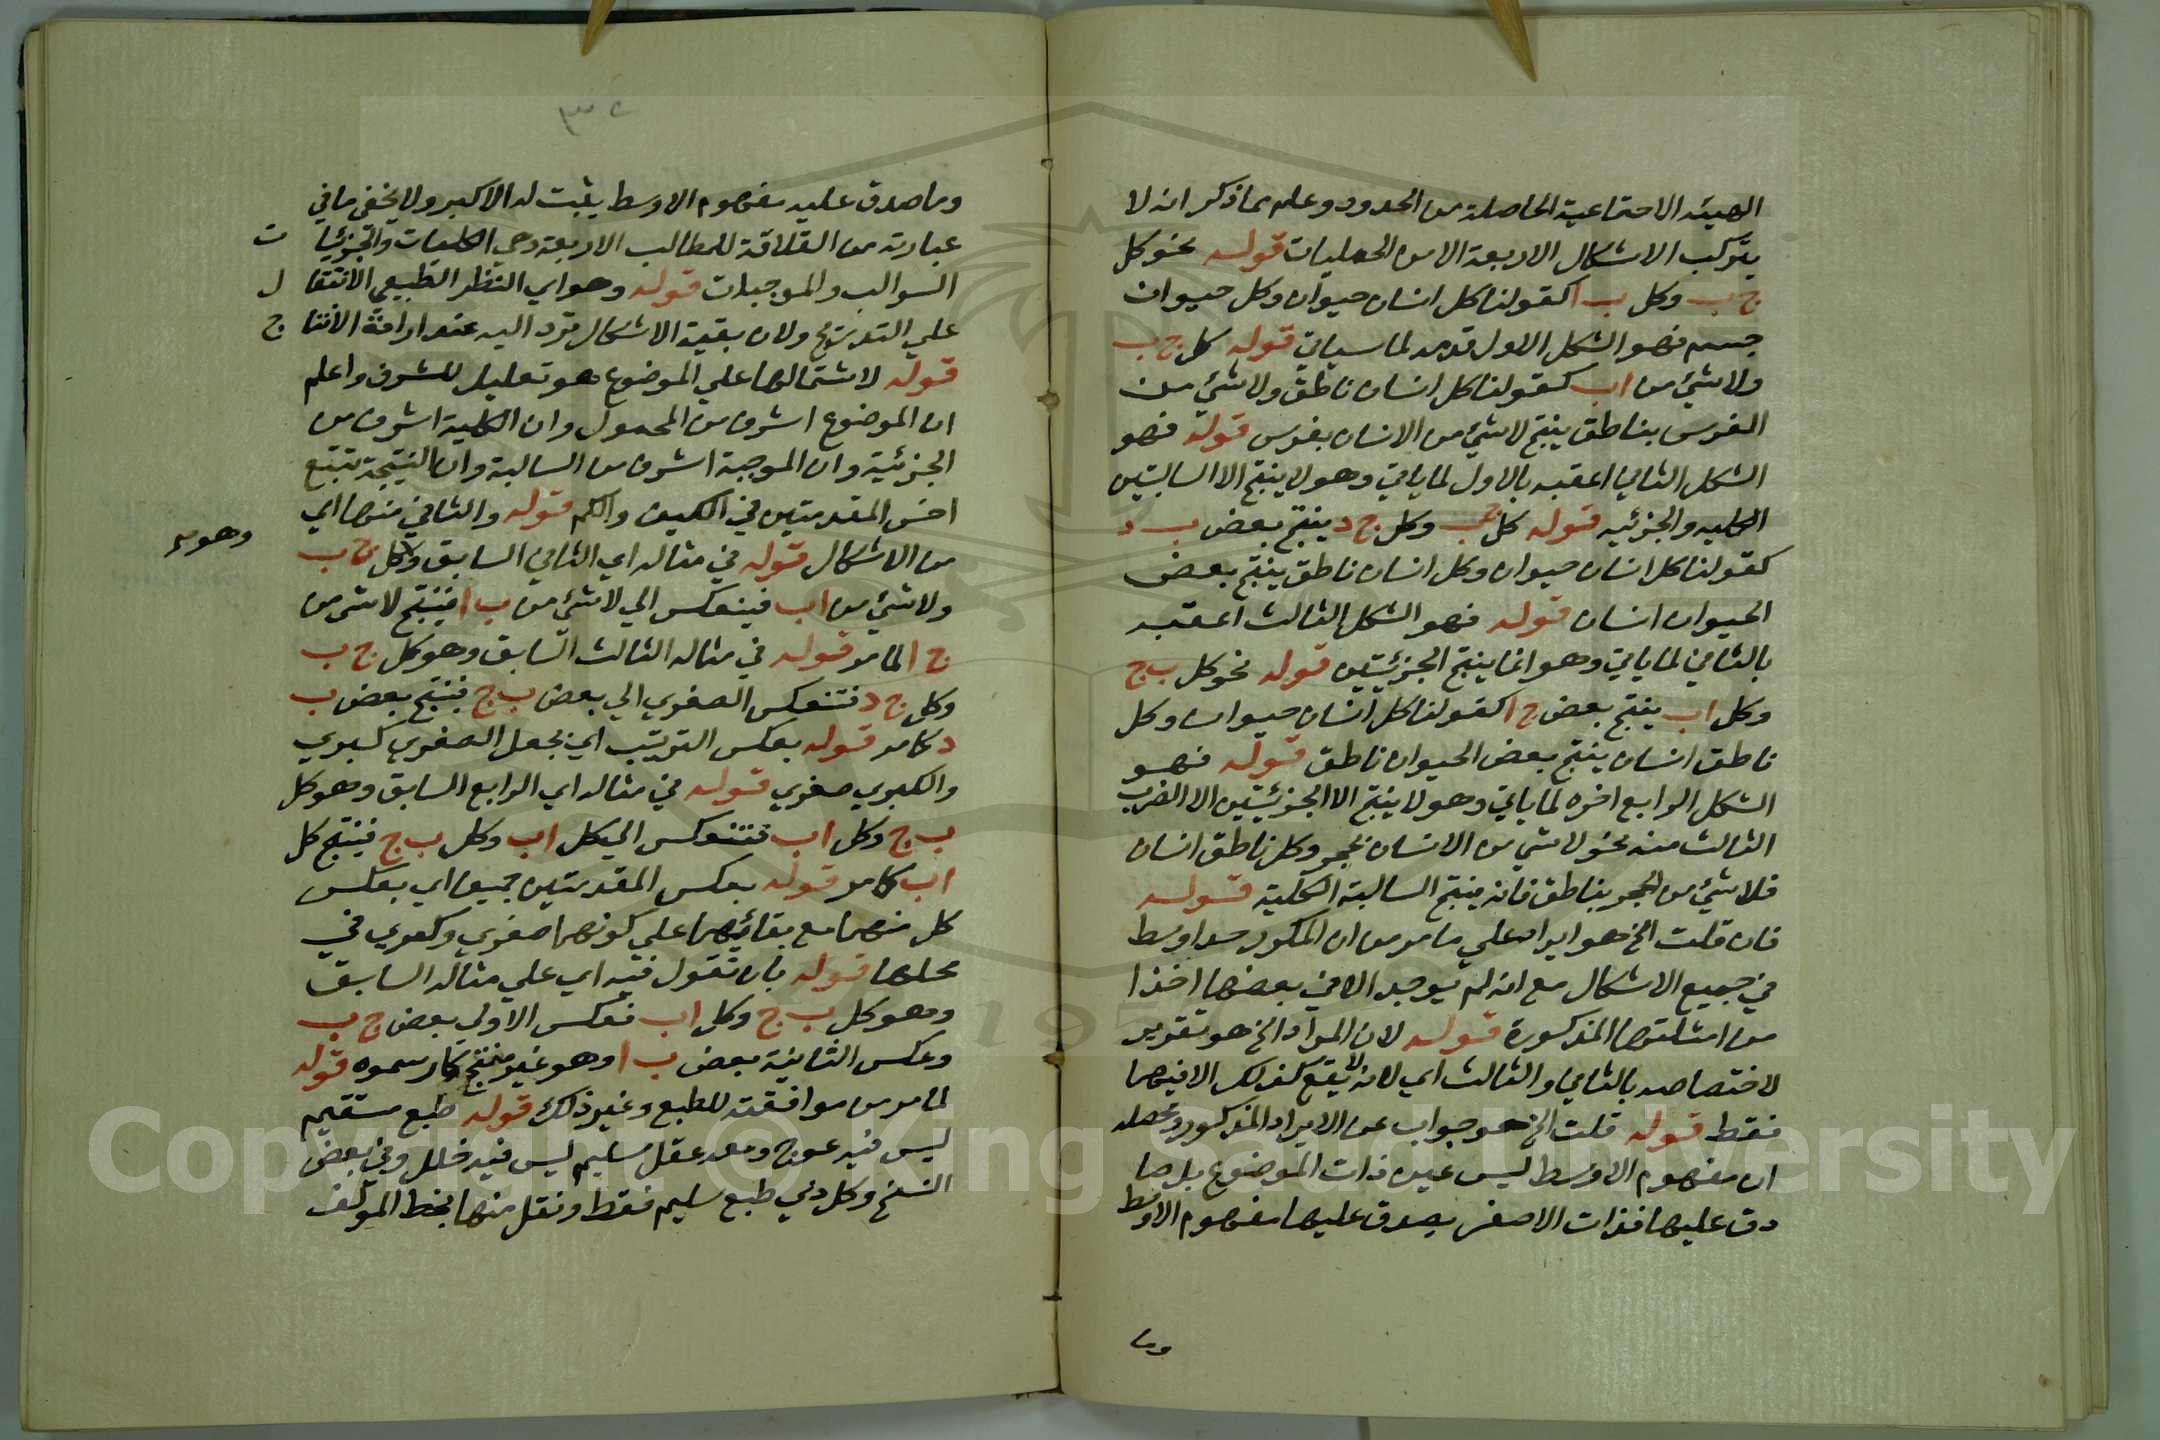 الهيئة الاجتماعية الحاصلة من الحدود وعلم مما ذكر انه لا
يتركب الاشكال الاربعة الا من الحمليات قوله نحو كل
ج ب وكل ب ا كقولنا كل انسان حيوان وكل حيوان
جسم فهو الشكل الاول قدمه لما سيأتي قوله كل ج ب
ولا شئ من ا ب كقولنا كل انسان ناطق ولا شئ من
الفرس بناطق ينتج لا شئ من الانسان بفرس قوله فهو
الشكل الثاني اعقبه بالاول لما يأتي وهو لا ينتج الا السالبتين
الكليه والجزئيه قوله كل ج ب وكل ج د ينتج بعض ب د
كقولنا كل انسان حيوان وكل انسان ناطق ينتج بعض
الحيوان انسان قوله فهو الشكل الثالث اعقبه
بالثاني لما يأتي وهو انما ينتج الجزئيتين قوله نحو كل ب ج
وكل ا ب ينتج بعض ج ا كقولنا كل انسان حيوان وكل
ناطق انسان ينتج بعض الحيوان ناطق قوله فهو
الشكل الرابع اخره لما يأتي وهو لا ينتج الا الجزئيتين الا الضرب
الثالث منه نحو لا شئ من الانسان بحجر وكل ناطق انسان
فلا شئ من الحجر بناطق فانه ينتج السالبة الكلية قوله
فان قلت الخ هو ايراد على ما مر من ان المكرر حد اوسط
في جميع الاشكال مع انه لم يوجد الا في بعضها اخذا
من امثلتها المذكورة قوله لان المراد الخ هو تقرير
لاختصاصه بالثاني والثالث اي لانه لا يقع كذلك الا فيهما
فقط قوله قلت الخ هو جواب عن الايراد المذكور وحصله
ان مفهوم الاوسط ليس عين ذات الموضوع بل صا
دق عليها فذات الاصغر يصدق عليها مفهوم الاوسط
وما
٣٢
وما صدق عليه مفهوم الاوسط يثبت له الاكبر ولا يخفى ما في
عبارته من القلاقة للمطالب الاربعة وهي الكليات والجزئيا ت
السوالب والموجبات قوله وهو اي النظر الطبيعي الانتقا ل
على التدريج ولان بقية الاشكال ترد اليه عند ارادة الانتا ج
قوله لاشتمالها على الموضوع هو تعليل للشرف واعلم
ان الموضوع اشرف من المحمول وان الكلية اشرف من
الجزئية وان الموجبة اشرف من السالبة وان النتيجة تتبع
اخس المقدمتين في الكيف والكم قوله والثاني منها اي
من الاشكال قوله في مثاله اي الثاني السابق وكل ج ب
وهو
ولا شئ من ا ب فينعكس الي لا شئ من ب ا فينتج لا شئ من
ج ا لما مر قوله في مثاله الثالث السابق وهو كل ج ب
وكل ج د فتنعكس الصغري الي بعض ب ج فينتج بعض ب
د كما مر قوله بعكس الترتيب اي بجعل الصغري كبري
والكبري صغري قوله في مثاله اي الرابع السابق وهو كل
ب ج وكل ا ب فتنعكس الي كل ا ب وكل ب ج فينتج كل
ا ب كما مر قوله بعكس المقدمتين جميعا اي بعكس
كل منهما مع بقائهما على كونهما صغري وكبري في
محلها قوله بان تقول فيه اي علي مثاله السابق
وهو كل ب ج وكل ا ب فعكس الاولي بعض ج ب
وعكس الثانية بعض ب ا وهو غير منتج كما رسموه قوله
لما مر من موافقته للطبع وغير ذلك قوله طبع مستقيم
ليس فيه عوج ومعه عقل سليم ليس فيه خلل وفي بعض
النسخ وكل ذي طبع سليم فقط ونقل منها بخط المؤلف
Copyright © King Saud University